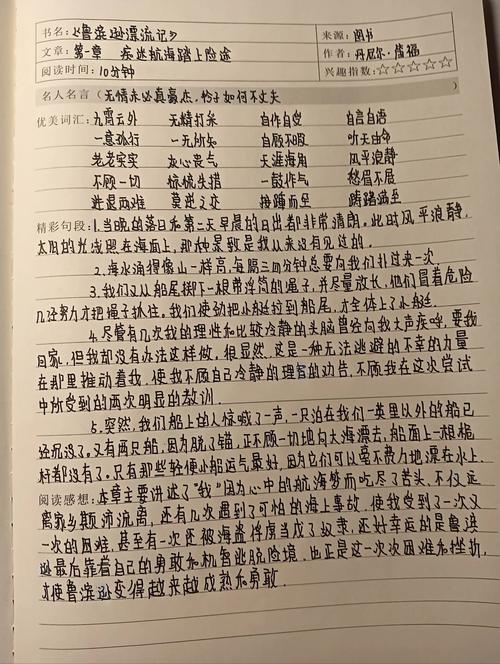 书名:《鲁滨逊漂流记》 来源:图书
文章:第一章 痴迷航海踏上险途 作者:丹尼尔·笛福
阅读时间:10分钟 兴趣指数:☆☆☆☆☆
名人名言(无情未必真豪杰,怜子如何不丈夫)
优美词汇:九霄云外 无精打采 自作自受 自言自语
一意孤行 一无所知 自顾不暇 听天由命
老老实实 灰心丧气 天涯海角 风平浪静
不顾一切 惊慌失措 一鼓作气 愁眉不展
进退两难 莫逆之交 接踵而至 踌躇满志
精彩句段:1.当晚的落日和第二天早晨的日出都非常清朗。此时风平浪静,
太阳的光线照在海面上,那种景致是我从来没有见过的。
2.海水涌得像山一样高,每隔三四分钟总要向我们扑过来一次。
3.我们又从船尾掷下一根带浮筒的绳子,并尽量放长。他们冒着危险
几经努力才把绳子抓住。我们使劲把小艇拉到船尾,才全体上了小艇。
4.尽管有几次我的理性和比较冷静的头脑曾经向我大声疾呼,要我
回家,但我却没有办法这样做。很显然,这是一种无法逃避的不幸的力量
在那里推动着我,使我不顾自己冷静的理智的劝告,不顾我在这次尝试
中所受到的两次明显的教训。
5.突然,我们船上的人惊喊了一声,一只泊在我们一英里以外的船已
经沉没了。又有两只船,因为脱了锚,正不顾一切地向大海漂去,船面上一根桅
杆都没有了。只有那些轻便小船运气最好,因为它们可以毫不费力地漂在水上。
阅读感想:本章主要讲述了“我”因为心中的航海梦而吃尽了苦头,不仅远
离家乡颠沛流离,还有几次遇到了可怕的海上事故,使我受到了一次又
一次的困难,甚至有一次还被海盗俘虏当成了奴隶,还好幸运的是鲁滨
逊最后靠着自己的勇敢和机智逃脱险境。也正是这一次次困难和挫折,
才使鲁滨逊变得越来越成熟和勇敢。